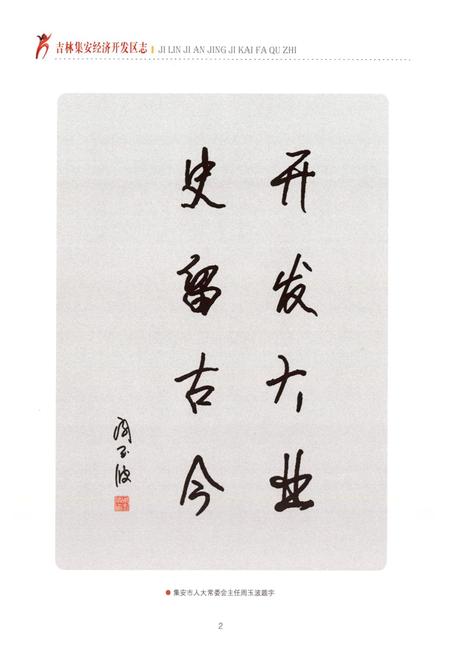 吉林集安经济开发区志 JI LIN JI AN JING JI KAI FA QU ZHI
开发大业
史留古今
周玉波
集安市人大常委会主任周玉波题字
2